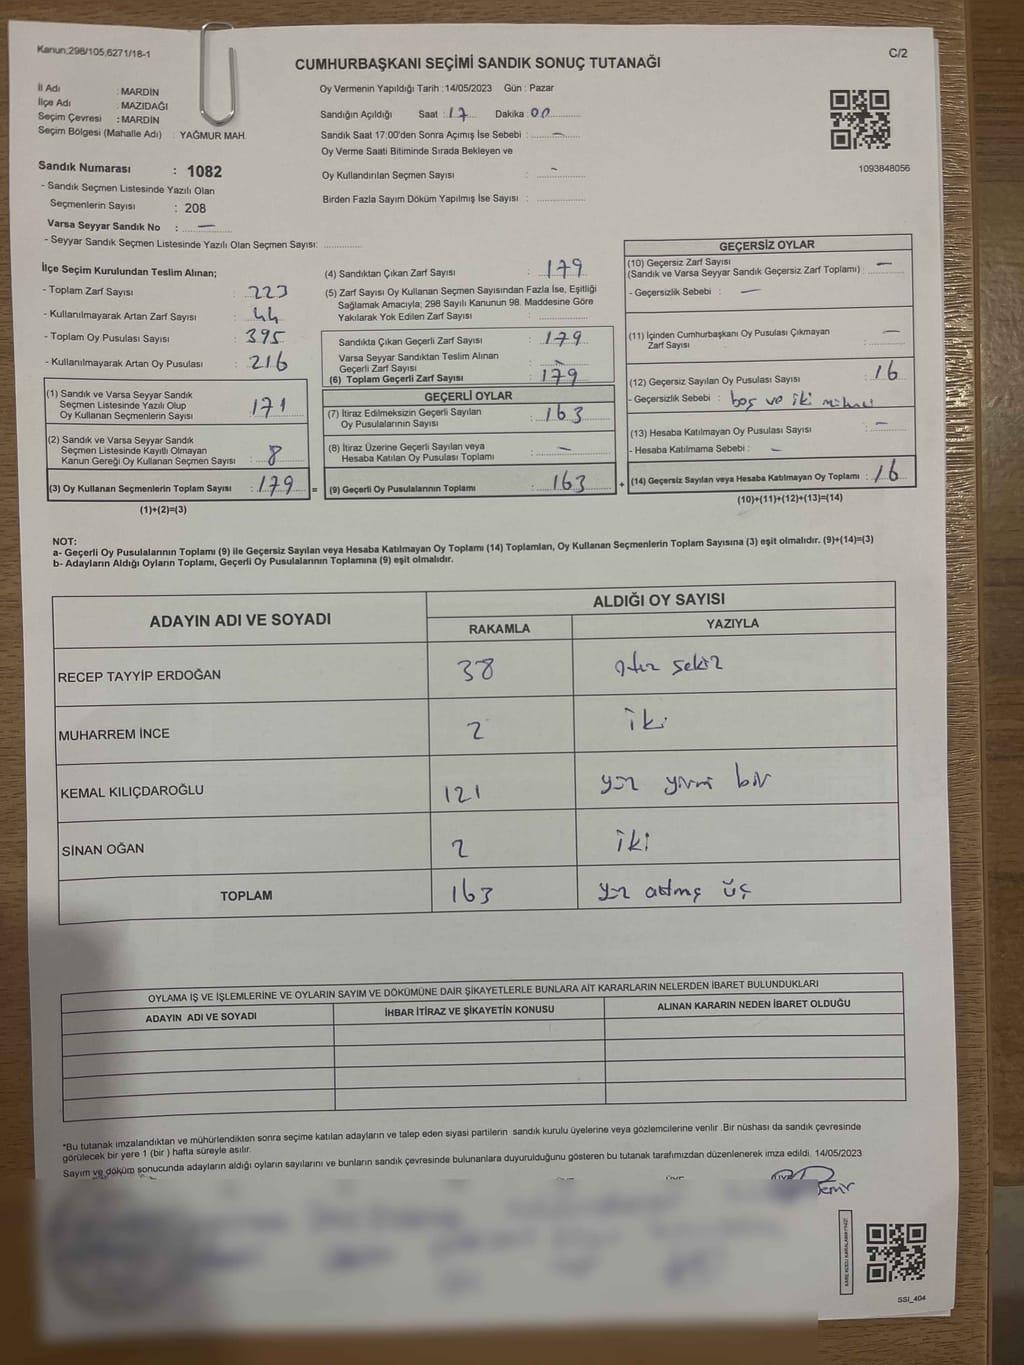 Kanun;298/105,6271/18-1
C/2
CUMHURBAŞKANI SEÇİMİ SANDIK SONUÇ TUTANAĞI
İl Adı : MARDİN
İlçe Adı : MAZIDAĞI
Seçim Çevresi : MARDİN
Seçim Bölgesi (Mahalle Adı) : YAĞMUR MAH.
Sandık Numarası : 1082
- Sandık Seçmen Listesinde Yazılı Olan
Seçmenlerin Sayısı : 208
Varsa Seyyar Sandık No : —
- Seyyar Sandık Seçmen Listesinde Yazılı Olan Seçmen Sayısı:
Oy Vermenin Yapıldığı Tarih : 14/05/2023 Gün : Pazar
Sandığın Açıldığı Saat : 17 Dakika : 00
Sandık Saat 17:00'den Sonra Açımış İse Sebebi : —
Oy Verme Saati Bitiminde Sırada Bekleyen ve
Oy Kullandırılan Seçmen Sayısı : -
Birden Fazla Sayım Döküm Yapılmış İse Sayısı :
1093848056
İlçe Seçim Kurulundan Teslim Alınan;
- Toplam Zarf Sayısı : 223
- Kullanılmayarak Artan Zarf Sayısı : 44
- Toplam Oy Pusulası Sayısı : 395
- Kullanılmayarak Artan Oy Pusulası : 216
(1) Sandık ve Varsa Seyyar Sandık
Seçmen Listesinde Yazılı Olup
Oy Kullanan Seçmenlerin Sayısı : 171
(2) Sandık ve Varsa Seyyar Sandık
Seçmen Listesinde Kayıtlı Olmayan
Kanun Gereği Oy Kullanan Seçmen Sayısı : 8
(3) Oy Kullanan Seçmenlerin Toplam Sayısı : 179 =
(1)+(2)=(3)
(4) Sandıktan Çıkan Zarf Sayısı : 179
(5) Zarf Sayısı Oy Kullanan Seçmen Sayısından Fazla İse, Eşitliği
Sağlamak Amacıyla; 298 Sayılı Kanunun 98. Maddesine Göre
Yakılarak Yok Edilen Zarf Sayısı :
Sandıkta Çıkan Geçerli Zarf Sayısı : 179
Varsa Seyyar Sandıktan Teslim Alınan
Geçerli Zarf Sayısı : -
(6) Toplam Geçerli Zarf Sayısı : 179
GEÇERLİ OYLAR
(7) İtiraz Edilmeksizin Geçerli Sayılan
Oy Pusulalarının Sayısı : 163
(8) İtiraz Üzerine Geçerli Sayılan veya
Hesaba Katılan Oy Pusulası Toplamı : —
(9) Geçerli Oy Pusulalarının Toplamı : 163 +
GEÇERSİZ OYLAR
(10) Geçersiz Zarf Sayısı —
(Sandık ve Varsa Seyyar Sandık Geçersiz Zarf Toplamı) :
- Geçersizlik Sebebi : —
(11) İçinden Cumhurbaşkanı Oy Pusulası Çıkmayan —
Zarf Sayısı :
(12) Geçersiz Sayılan Oy Pusulası Sayısı : 16
- Geçersizlik Sebebi : boş ve iki mühür
(13) Hesaba Katılmayan Oy Pusulası Sayısı : —
- Hesaba Katılmama Sebebi : —
(14) Geçersiz Sayılan veya Hesaba Katılmayan Oy Toplamı : 16
(10)+(11)+(12)+(13)=(14)
NOT:
a- Geçerli Oy Pusulalarının Toplamı (9) ile Geçersiz Sayılan veya Hesaba Katılmayan Oy Toplamı (14) Toplamları, Oy Kullanan Seçmenlerin Toplam Sayısına (3) eşit olmalıdır. (9)+(14)=(3)
b- Adayların Aldığı Oyların Toplamı, Geçerli Oy Pusulalarının Toplamına (9) eşit olmalıdır.
ADAYIN ADI VE SOYADI ALDIĞI OY SAYISI
RAKAMLA YAZIYLA
RECEP TAYYİP ERDOĞAN 38 otuz sekiz
MUHARREM İNCE 2 iki
KEMAL KILIÇDAROĞLU 121 yüz yirmi bir
SİNAN OĞAN 2 iki
TOPLAM 163 yüz atmış üç
OYLAMA İŞ VE İŞLEMLERİNE VE OYLARIN SAYIM VE DÖKÜMÜNE DAİR ŞİKAYETLERLE BUNLARA AİT KARARLARIN NELERDEN İBARET BULUNDUKLARI
ADAYIN ADI VE SOYADI İHBAR İTİRAZ VE ŞİKAYETİN KONUSU ALINAN KARARIN NEDEN İBARET OLDUĞU
*Bu tutanak imzalandıktan ve mühürlendikten sonra seçime katılan adayların ve talep eden siyasi partilerin sandık kurulu üyelerine veya gözlemcilerine verilir .Bir nüshası da sandık çevresinde
görülecek bir yere 1 (bir ) hafta süreyle asılır.
Sayım ve döküm sonucunda adayların aldığı oyların sayılarını ve bunların sandık çevresinde bulunanlara duyurulduğunu gösteren bu tutanak tarafımızdan düzenlenerek imza edildi. 14/05/2023
Demir
SSI_404